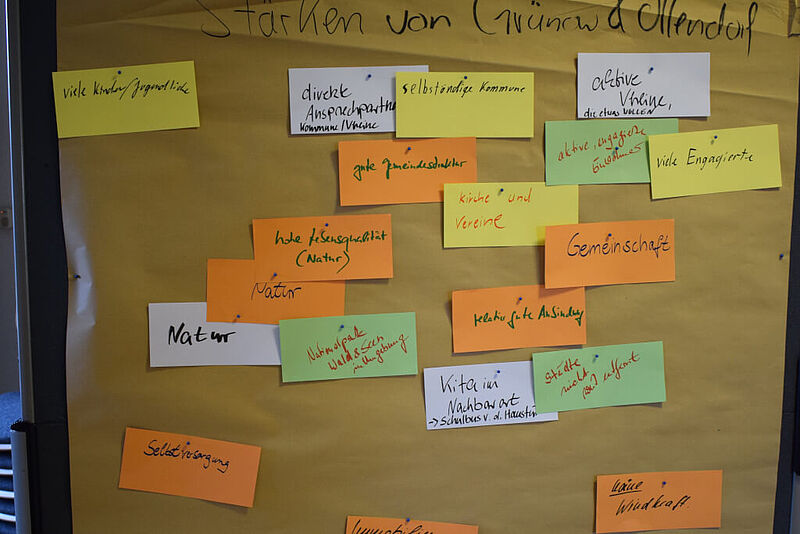 Stärken von Grünow & Ollendorf
viele Kinder/Jugendliche
direkte
Ansprechpartner
Kommune/Vereine
selbständige Kommune
aktive
Vereine,
die etwas WOLLEN
aktive, engagierte
Einwohner
viele Engagierte
gute Gemeindestruktur
Kirche und
Vereine
hohe Lebensqualität
(Natur)
Gemeinschaft
Natur
Natur
Nationalpark
Wald & Seen
in Umgebung
relativ gute Anbindung
Kita im
Nachbarort
→ Schulbus v. d. Haustür
Städte
nicht
weit entfernt
Selbstversorgung
keine
Windkraft.